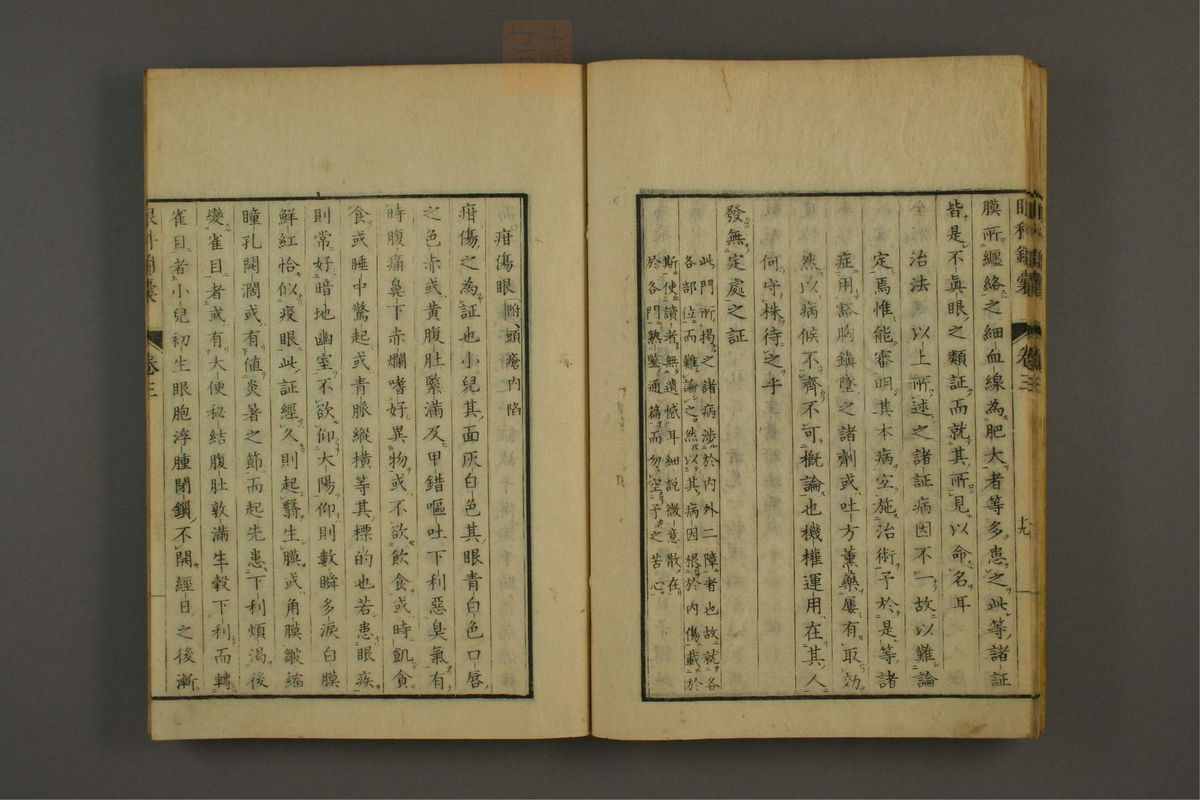 眼科錦囊 卷三 十九
膜所纏絡之細血線為肥大者等多患之此等諸証
皆是不眞眼之類証而就其所見以命名耳
治法 以上所述之諸証病因不一故以難論
定焉惟能審明其本病宜施治術予於是等諸
症用豁胸鎭墜之諸劑或吐方薰藥屢有取効
然以病候不齊不可概論也機權運用在其人
何守株待之乎
發無定處之証
此門所揭之諸病涉於內外二障者也故就各
各部位而難論之然以其病因根於內傷載於
斯使讀者無遺憾耳細說微意散在
於各門熟鑒通篇而勿空予之苦心
疳傷眼 附頭瘡內陷
疳傷之為証也小兒其面灰白色其眼靑白色口唇
之色赤或黃腹肚緊滿及甲錯嘔吐下利惡臭氣有
時腹痛鼻下赤爛嗜好異物或不欲飮食或時飢貪
食或睡中驚起或青脈縱橫等其標的也若患眼疾
則常好暗地幽室不欲仰大陽仰則數瞬多淚白膜
鮮紅恰似疫眼此証經久則起翳生膜或角膜皺縮
瞳孔開濶或有值炎暑之節而起先患下利煩渴後
變雀目者或有大便秘結腹肚敦滿生穀下利而轉
雀目者小兒初生眼胞浮腫閉鎖不開經日之後漸
眼科錦囊 卷三